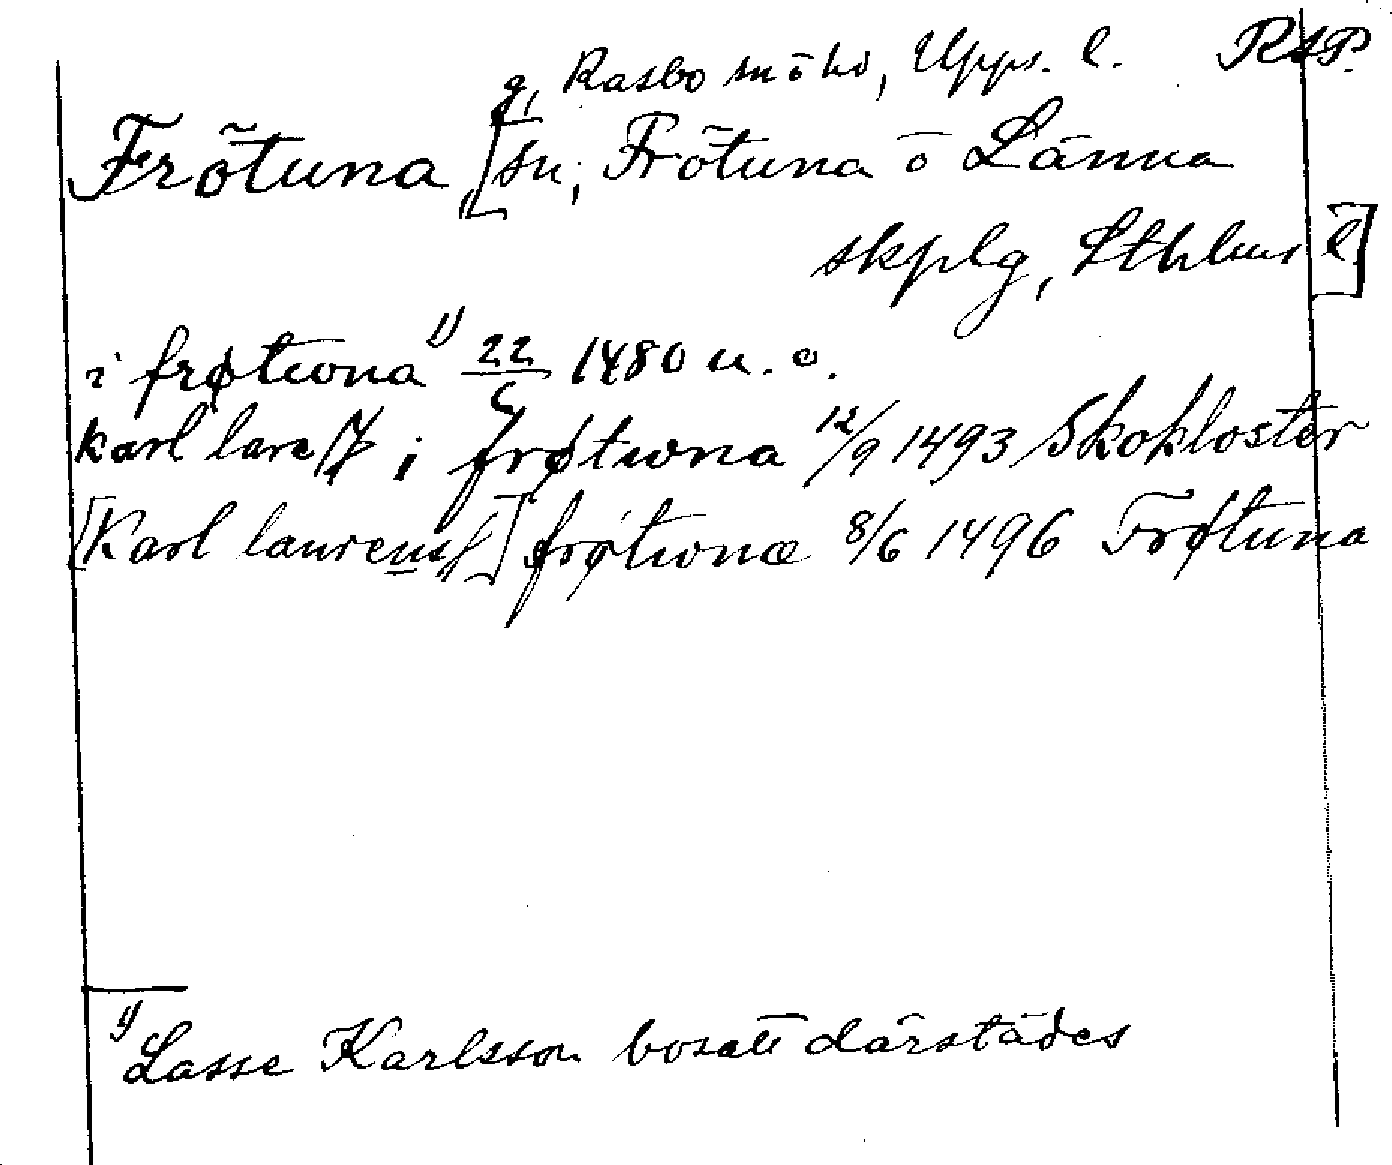 g, Rasbo sn o hd, Upps. l. RAP.
Frötuna [sn, Frötuna o Länna
skplg, Sthlms l]
i frøtwna 1) 22/6 1480 u. o.
karl lare i frøtwna 12/9 1493 Skokloster
[Karl laurensß] frøtwnæ 8/6 1496 Frøtuna
1) Lasse Karlsson bosatt därstädes